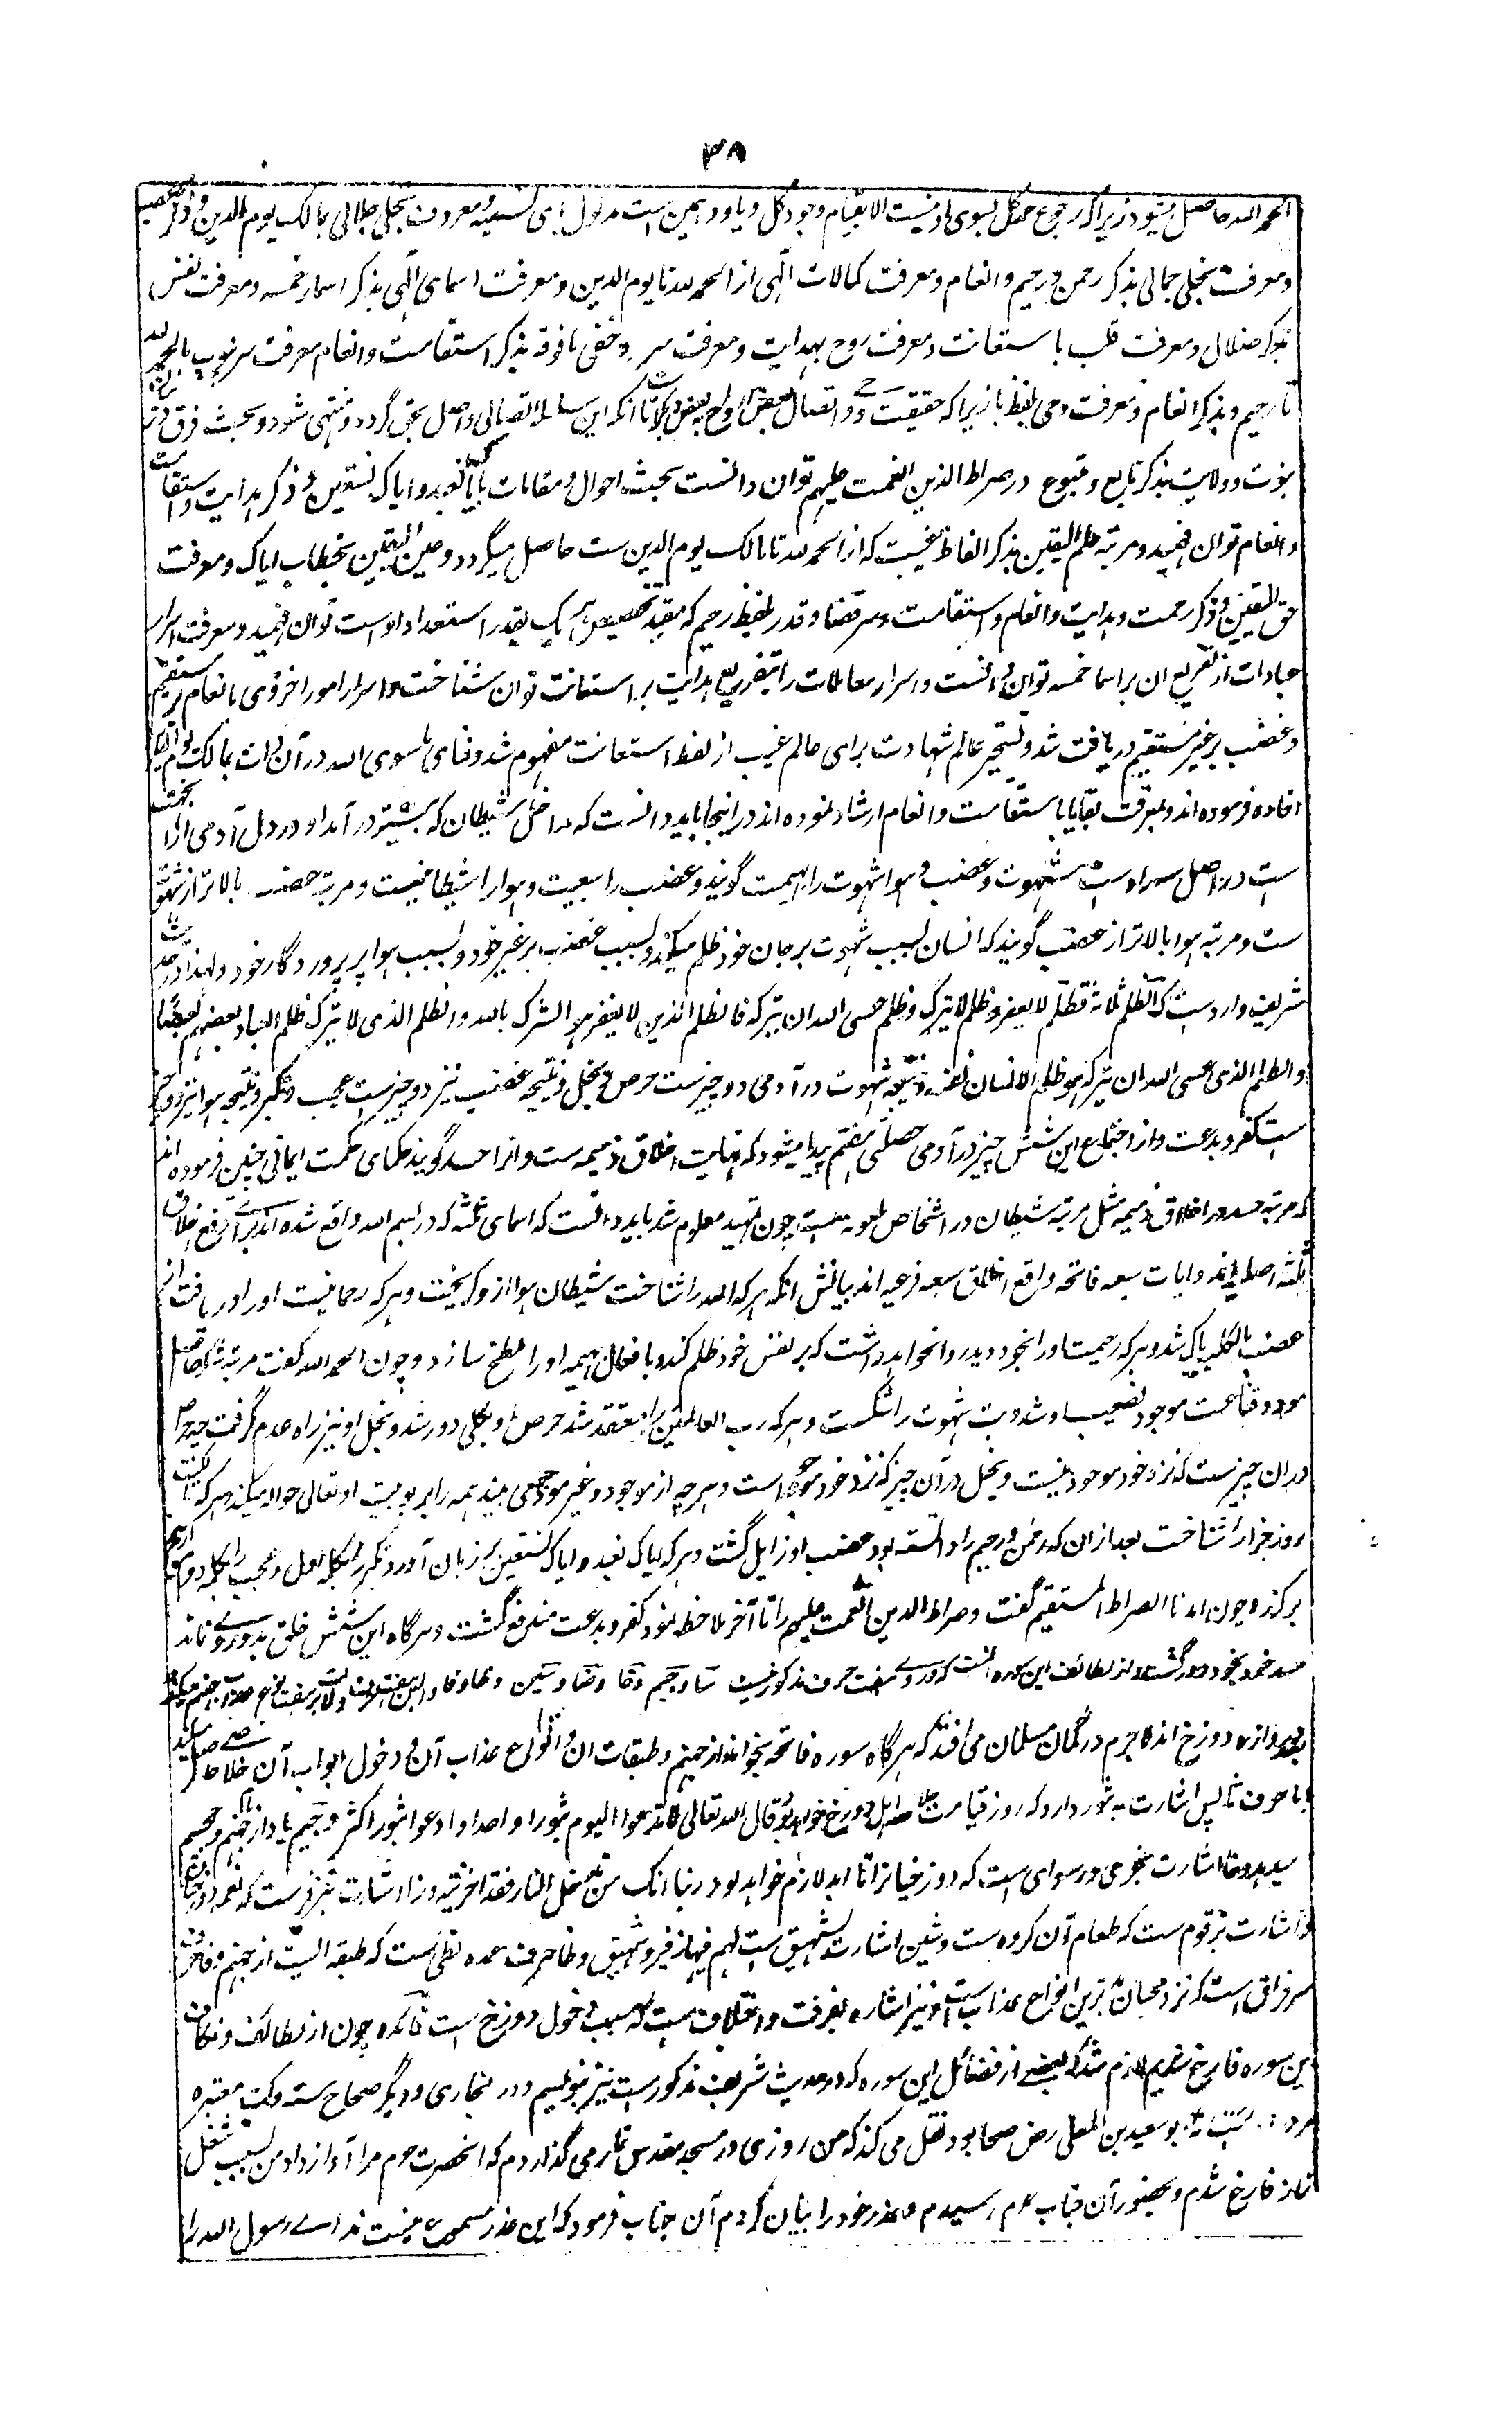 ۳۸
الحمد لله حاصل میشود زیرا که رجوع حمد کل بسوی او نیست الا بقیام وجود کل و یا و همین است مدلول بای تسمیه و معروف بتجلی جلالی بمالک یوم الدین و ذکر غضب
و معرفت تجلی جمالی بذکر رحمن و رحیم و انعام و معرفت کمالات الٓهی از الحمد لله تا یوم الدین و معرفت اسمای الٓهی بذکر اسماء خمسه و معرفت نفس
بذکر ضلال و معرفت قلب با ستعانت و معرفت روح بهدایت و معرفت سر و خفی ما فوقه بذکر استقامت و انعام معرفت سر ربوبیت بالحمد لله
تا رحیم و بذکر انعام و معرفت وحی بلفظ با زیرا که حقیقت وحی اتصال بعض ارواح ببعض دیگر تا آنکه این سلسله اتصالی واصل بحق گردد و منتهی شود و بحث فرق در
نبوت و ولایت بذکر تابع و متبوع در صراط الذین انعمت علیهم توان دانست بحث احوال و مقامات بایاک نعبد و ایاک نستعین و ذکر هدایت و استقامت
و انعام توان فهمید و مرتبه علم الیقین بذکر الفاظ غیبت که از الحمد لله تا مالک یوم الدین ست حاصل میگردد و عین الیقین بخطاب ایاک و معرفت
حق الیقین و ذکر رحمت و هدایت و انعام و استقامت و سر قضا و قدر بلفظ رحیم که مقید تخصیص هر یک بقدر استعداد اوست توان فهمید و معرفت اسرار
عبادات از تفریع ان بر اسما خمسه توان دانست و اسرار معاملات را بتفریع هدایت بر استعانت توان شناخت و اسرار امور اخروی بانعام بر مستقیم
و غضب بر غیر مستقیم دریافت شد و تسخیر عالم شهادت برای عالم غیب از لفظ استعانت مفهوم شد و فنای ما سوی الله در آن ذات بمالک یوم الدین
افاده فرموده اند و بمعرفت بقایا با ستقامت و انعام ارشاد نموده اند در اینجا باید دانست که مداخل شیطان که بیشتر در آمد او در دل آدمی ازان جهت
ست در اصل سه راه ست شهوت و غضب و هوا شهوت را بهیمیت گویند و غضب را سبعیت و هوا را شیطانیت و مرتبه غضب بالاتر از شهوت
ست و مرتبه هوا بالاتر از غضب گویند که انسان بسبب شهوت بر جان خود ظلم میکند و بسبب غضب بر غیر خود و بسبب هوا بر پروردگار خود و لهذا در حدیث
شریف وارد ست که الظلم ثلاثة فظلم لا یغفر و ظلم لا یترک و ظلم عسی الله ان یترکه فالظلم الذین لا یغفر هو الشرک بالله و الظلم الذی لا یترک ظلم العباد بعضهم بعضا
و الظلم الذی عسی الله ان یترکه هو ظلم الانسان نفسه و نتیجه شهوت در آدمی دو چیز ست حرص و بخل و نتیجه غضب نیز دو چیزست عجب و تکبر و نتیجه هوا نیز دو چیز
ست کفر و بدعت و از اجتماع این شش چیز در آدمی خصلتی هفتم پیدا میشود که نهایت اخلاق ذمیمه ست و انرا حسد گویند حکمای حکمت ایمانی چنین فرموده اند
که مرتبه حسد در اخلاق ذمیمه مثل مرتبه شیطان در اشخاص ملعونه چون تمهید معلوم شد باید دانست که اسمای ثلثه که در بسم الله واقع شده اند برای رفع اخلاق
ثلثه اصلیه اند و ایات سبعه فاتحه دافع اخلاق سبعه فرعیه اند بیانش انکه هر که الله را شناخت شیطان هوا ازو گریخت و هر که رحمانیت او را دریافت از
غضب بالکلیه پاک شد و هر که رحیمیت او را بخود دید روا نخواهد داشت که بر نفس خود ظلم کند و با فعال بهیمیه او را ملطخ سازد و چون الحمد لله گفت مرتبه شکر حاصل
نمود و قناعت موجود نصیب او شد و بت شهوت را شکست و هر که رب العالمین را معتقد شد حرص او بکلی دور شد و بخل او نیز راه عدم گرفت چه حرص
در ان چیزست که نزد خود موجود نیست و بخل در آن چیز که نزد خود موجود است و هر چه از موجود و غیر موجود می بیند همه را بربوبیت او تعالی حواله میکند و هر که مالکیت
روز جزا را شناخت بعد از ان که رحمن و رحیم را دانسته بود غضب او زایل گشت و هر که ایاک نعبد و ایاک نستعین بر زبان آورد تکبر را بکلمه اول و عجب را بکلمه دوم از بیخ
بر کند و چون اهدنا الصراط المستقیم گفت و صراط الذین انعمت علیهم را تا آخر ملاحظه نمود کفر و بدعت مندفع گشت و هرگاه این شش خلق بد دروی نماند
حسد خود بخود دور گشت و از لطائف این سوره انست که دروی هفت حرف مذکور نیست ثا و جیم و خا و زا و شین و ظا و فا و این هفت حروف دلالت بر هفت نوع عذاب جهنم میکند
هفت دروازه دوزخ اند لاجرم در گمان مسلمان می افتد که هر گاه سوره فاتحه بخواند از جهنم و طبقات ان و انواع عذاب آن و دخول ابواب آن خلاص حاصل
اما حرف ثا پس اشارت به ثبور دارد که روز قیامت اهل دوزخ خواهد بود قال الله تعالی لا تدعوا الیوم ثبورا واحدا و ادعوا ثبورا کثیرا و جیم یاد از جهنم و جحیم
میدهد و خا اشارت بخرمی و رسوای است که دوزخیانرا تا ابد لازم خواهد بود ربنا انک من تدخل النار فقد اخزیته و زا اشارت بزفیرست
و اشارت بزقوم ست که طعام آن گروه ست و شین اشارت بشهیق ست لهم فیها زفیر و شهیق و ظا حرف عمده لظی است که طبقه الیست از جهنم و فا حرف
سر فراق است که نزد محبان بدترین انواع عذاب ست و نیز اشاره بفرقت و اختلاف ست که سبب دخول دوزخ است فائده چون از لطائف و نکات
این سوره فارغ شدیم لازم شد که بعضی از فضائل این سوره که در حدیث شریف مذکور ست نیز بنویسیم و در بخاری و دیگر صحاح سته و کتب معتبره
بو سعید بن المعلی رض صحابی بود نقل می کند که من روزی در مسجد مقدس نماز می گذاردم که انحضرت صلعم مرا آواز داد من بسبب شغل
نماز فارغ شدم و بحضور آن جناب صلعم رسیدم و عذر خود را بیان کردم آن جناب فرمود که این عذر مسموع نیست ندای رسول الله را